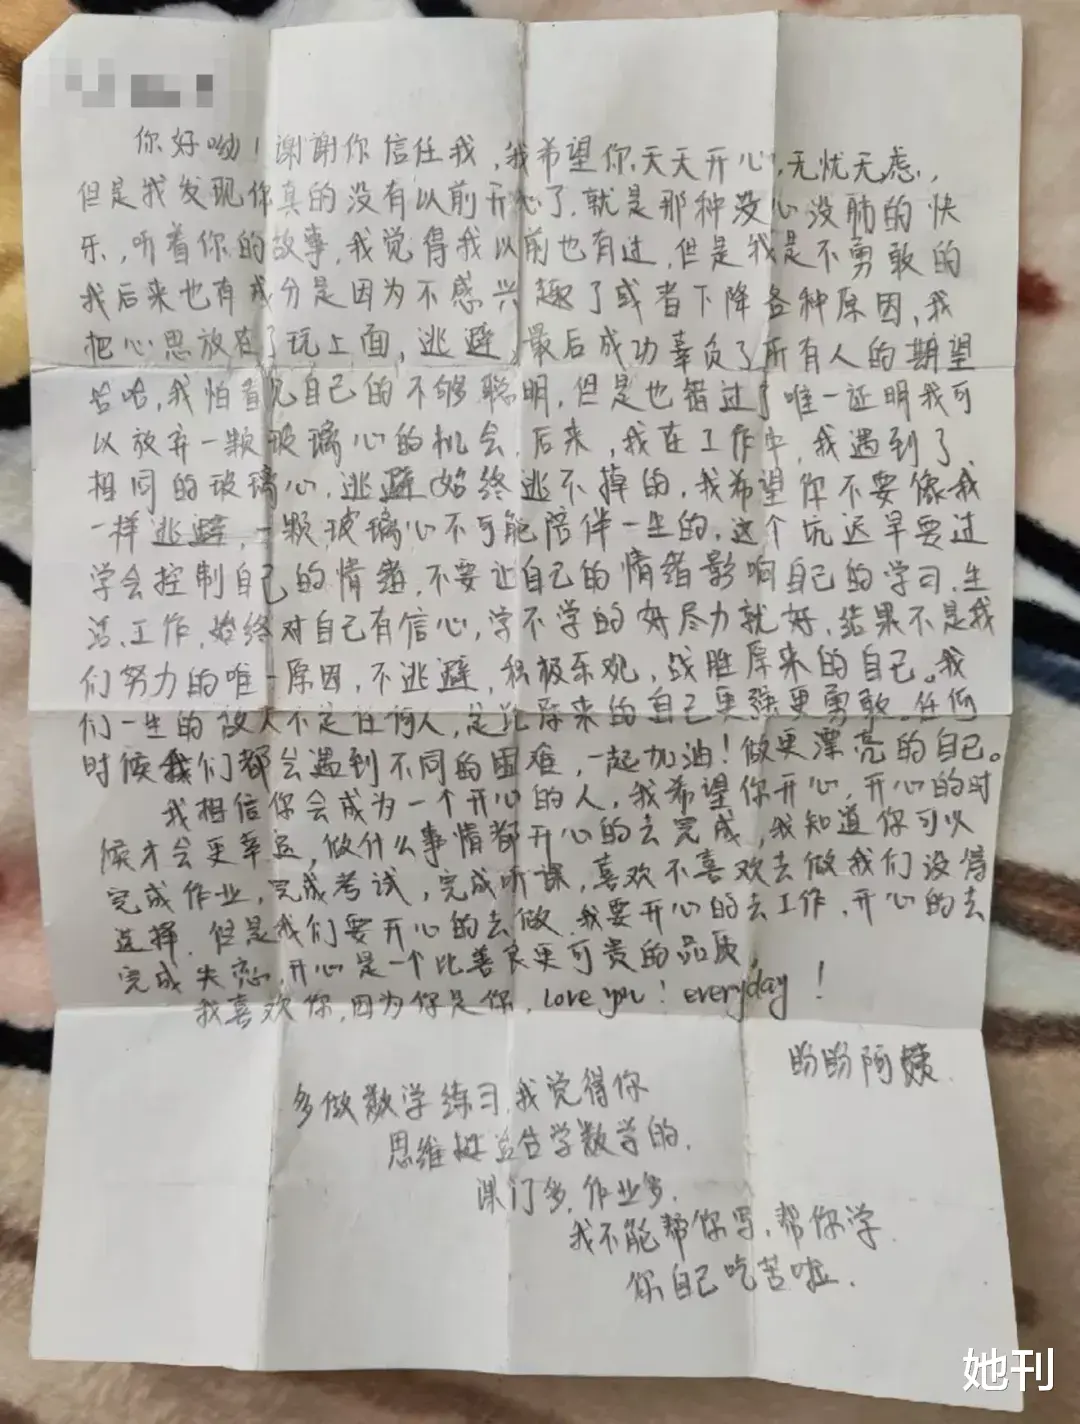 你好呦！谢谢你信任我，我希望你，天天开心，无忧无虑，
但是我发现你真的没有以前开心了，就是那种没心没肺的快
乐，听着你的故事，我觉得我以前也有过，但是我是不勇敢的
我后来也有成分是因为不感兴趣了或者下降各种原因，我
把心思放在了玩上面，逃避，最后成功辜负了所有人的期望
哈哈，我怕看见自己的不够聪明，但是也错过了唯一证明我可
以放弃一颗玻璃心的机会，后来，我在工作中，我遇到了，
相同的玻璃心，逃避始终逃不掉的，我希望你不要像我
一样逃避，一颗玻璃心不可能陪伴一生的，这个坑迟早要过
学会控制自己的情绪，不要让自己的情绪影响自己的学习、生
活、工作，始终对自己有信心，学不学的好尽力就好，结果不是我
们努力的唯一原因，不逃避，积极乐观，战胜原来的自己。我
们一生的敌人不是任何人，是比原来的自己更强更勇敢。任何
时候我们都会遇到不同的困难，一起加油！做更漂亮的自己。
我相信你会成为一个开心的人，我希望你开心，开心的时
候才会更幸运，做什么事情都开心的去完成，我知道你可以
完成作业，完成考试，完成听课，喜欢不喜欢去做我们没得
选择，但是我们要开心的去做，我要开心的去工作，开心的去
完成失恋，开心是一个比善良更可贵的品质，
我喜欢你，因为你是你，Love you！everyday！
盼盼阿姨
多做数学练习，我觉得你
思维挺适合学数学的，
课门多，作业多，
我不能帮你写，帮你学
你自己吃苦啦，
她刊